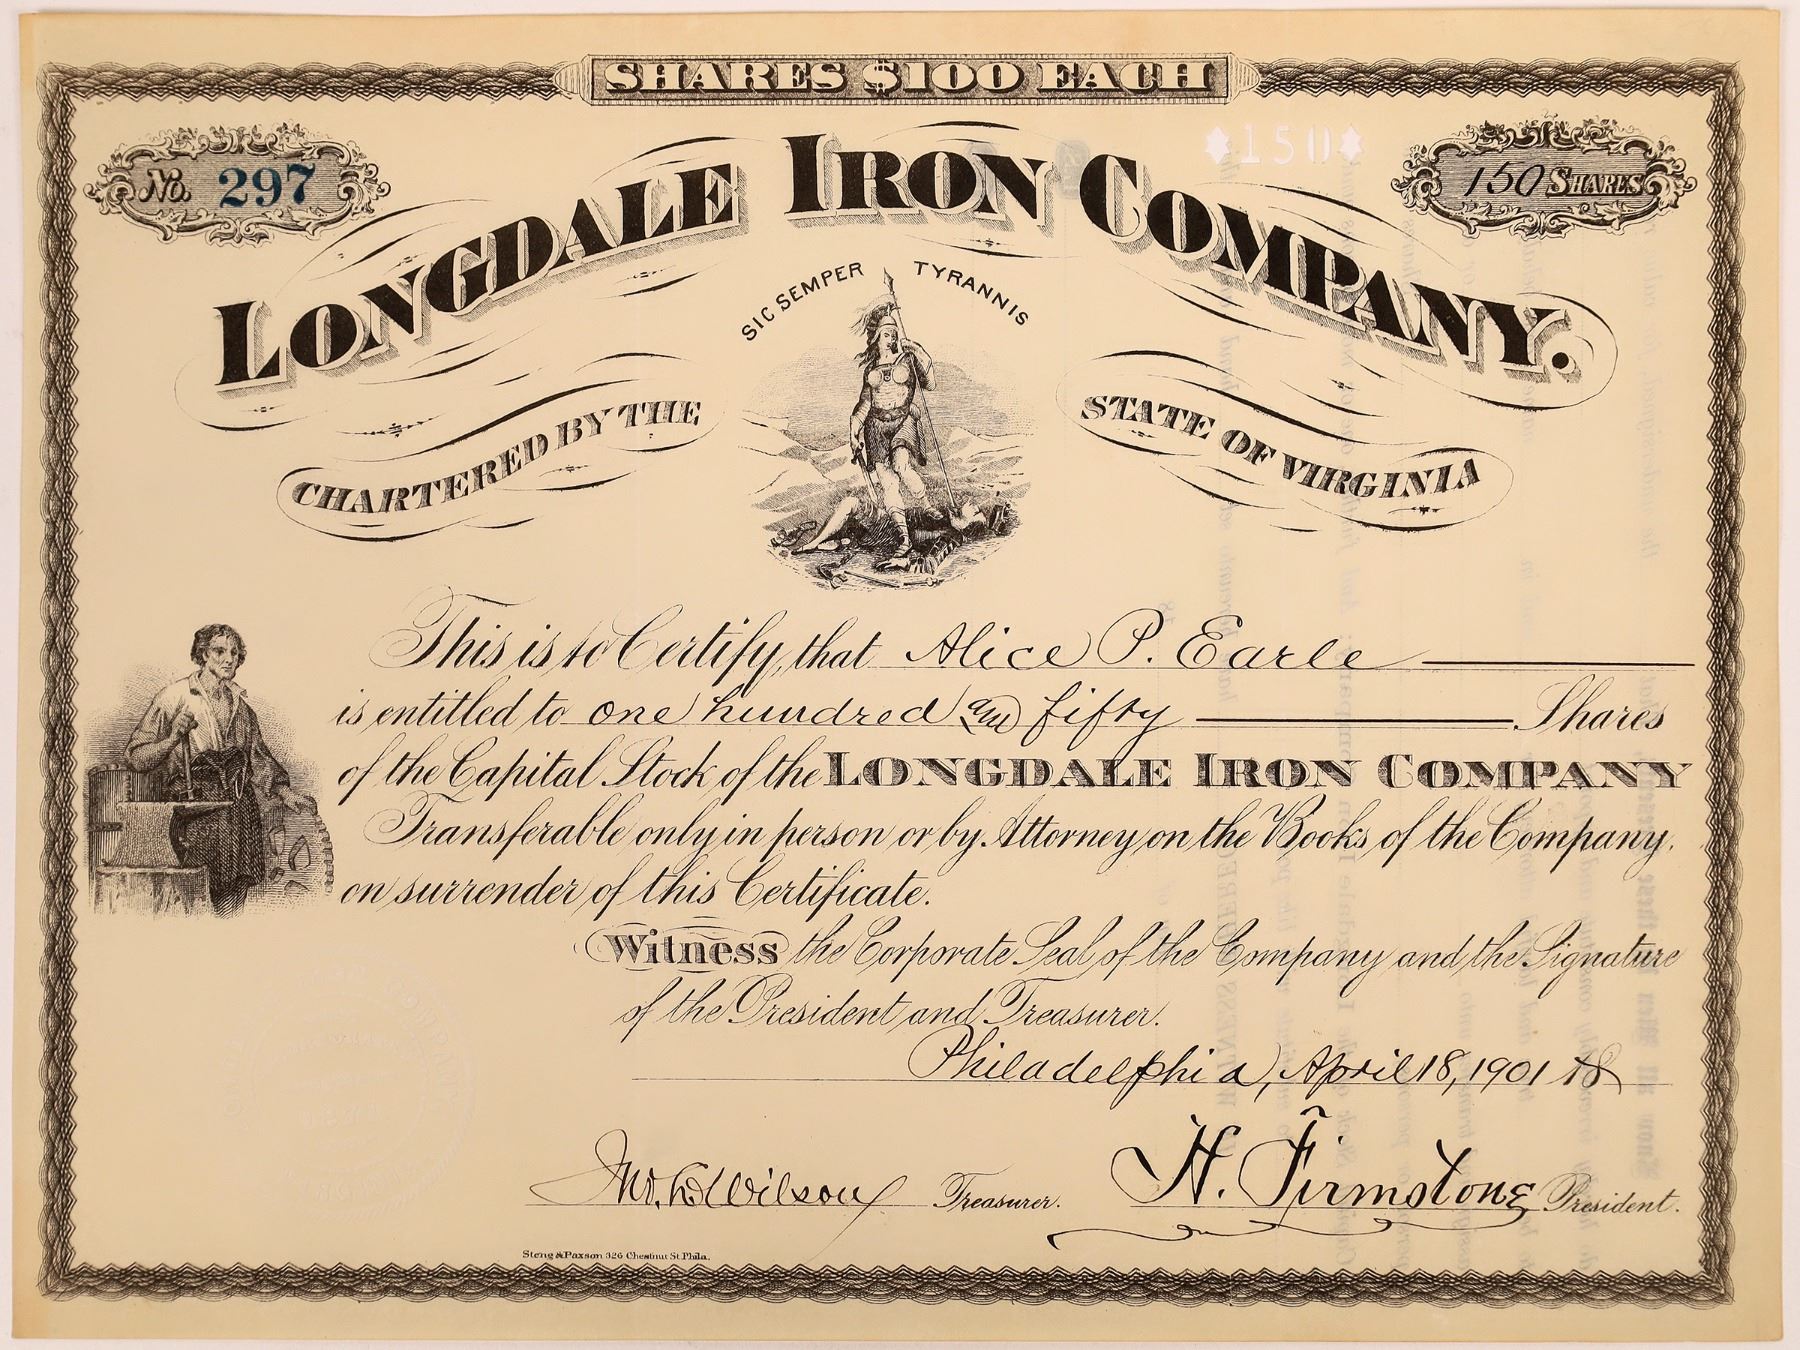 SHARES $100 EACH
No. 297
*150*
150 SHARES
LONGDALE IRON COMPANY.
SIC SEMPER TYRANNIS
CHARTERED BY THE STATE OF VIRGINIA
This is to Certify, that Alice P. Earle
is entitled to one hundred and fifty Shares
of the Capital Stock of the LONGDALE IRON COMPANY
Transferable only in person or by Attorney on the Books of the Company,
on surrender of this Certificate.
Witness the Corporate Seal of the Company and the Signature
of the President and Treasurer.
Philadelphia, April 18, 1901 18
Jno. E. Wilson Treasurer. H. Firmstone President.
Steng & Paxson 326 Chestnut St. Phila.